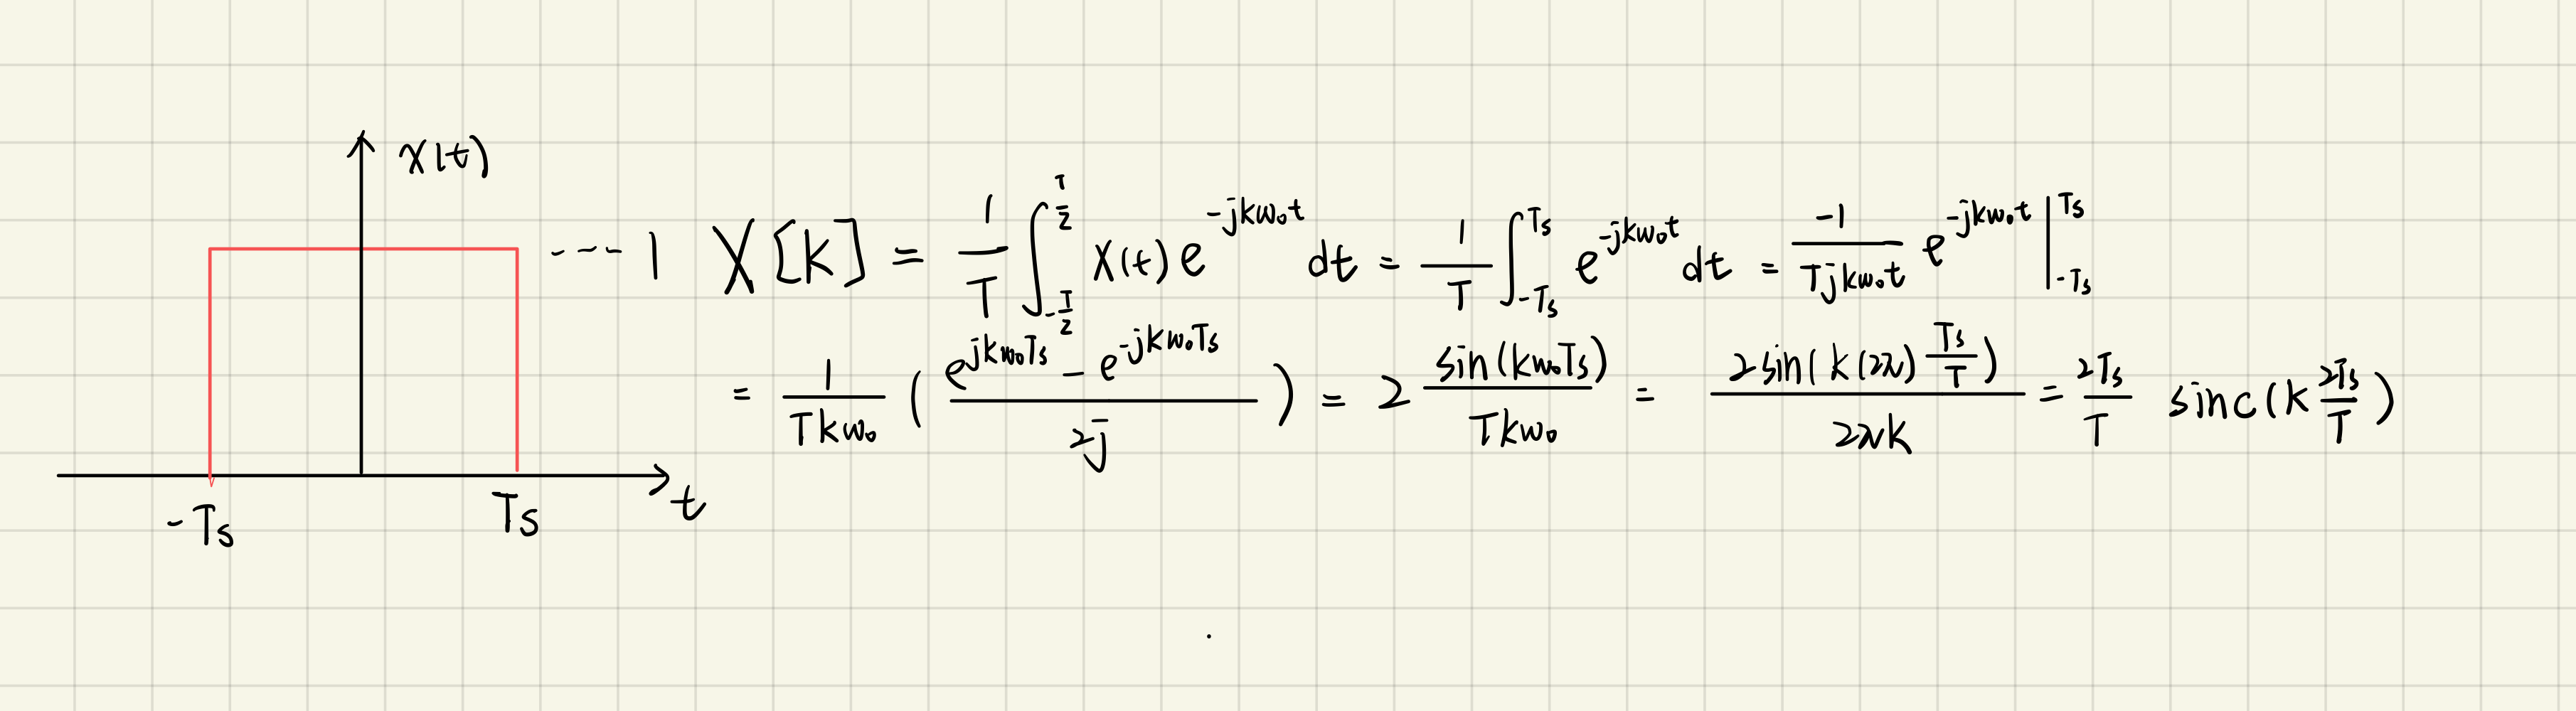 x(t)
---1 X[k] = \frac{1}{T} \int_{-\frac{T}{2}}^{\frac{T}{2}} x(t) e^{-jkω₀t} dt = \frac{1}{T} \int_{-Ts}^{Ts} e^{-jkω₀t} dt = \frac{-1}{Tjkω₀t} e^{-jkω₀t} |_{-Ts}^{Ts}
= \frac{1}{Tkω₀} ( \frac{e^{jkω₀Ts} - e^{-jkω₀Ts}}{2j} ) = 2 \frac{sin(kω₀Ts)}{Tkω₀} = \frac{2sin(k(2π)\frac{Ts}{T})}{2πk} = \frac{2Ts}{T} sinc(k\frac{2Ts}{T})
-Ts Ts t